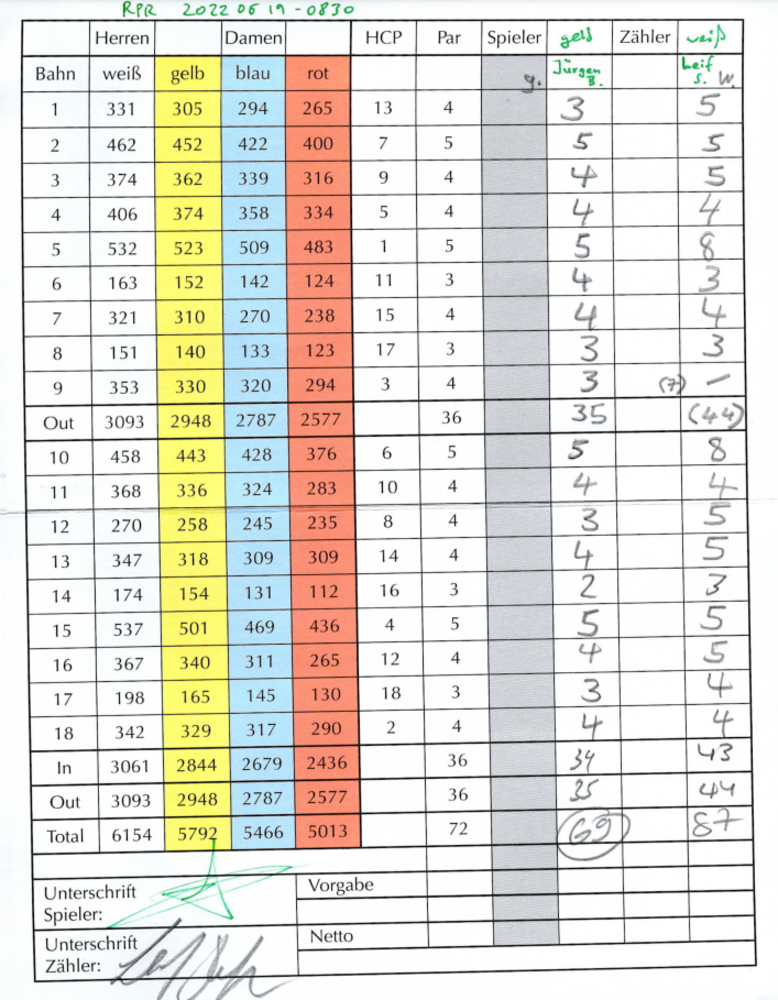 RPR 2022 06 19 - 0830
Herren Damen HCP Par Spieler gelb Zähler weiß
Bahn weiß gelb blau rot g. Jürgen B. Leif S. W.
1 331 305 294 265 13 4 3 5
2 462 452 422 400 7 5 5 5
3 374 362 339 316 9 4 4 5
4 406 374 358 334 5 4 4 4
5 532 523 509 483 1 5 5 8
6 163 152 142 124 11 3 4 3
7 321 310 270 238 15 4 4 4
8 151 140 133 123 17 3 3 3
9 353 330 320 294 3 4 3 (7) –
Out 3093 2948 2787 2577 36 35 (44)
10 458 443 428 376 6 5 5 8
11 368 336 324 283 10 4 4 4
12 270 258 245 235 8 4 3 5
13 347 318 309 309 14 4 4 5
14 174 154 131 112 16 3 2 3
15 537 501 469 436 4 5 5 5
16 367 340 311 265 12 4 4 5
17 198 165 145 130 18 3 3 4
18 342 329 317 290 2 4 4 4
In 3061 2844 2679 2436 36 34 43
Out 3093 2948 2787 2577 36 35 44
Total 6154 5792 5466 5013 72 69 87
Unterschrift
Spieler:
Vorgabe
Unterschrift
Zähler:
Netto